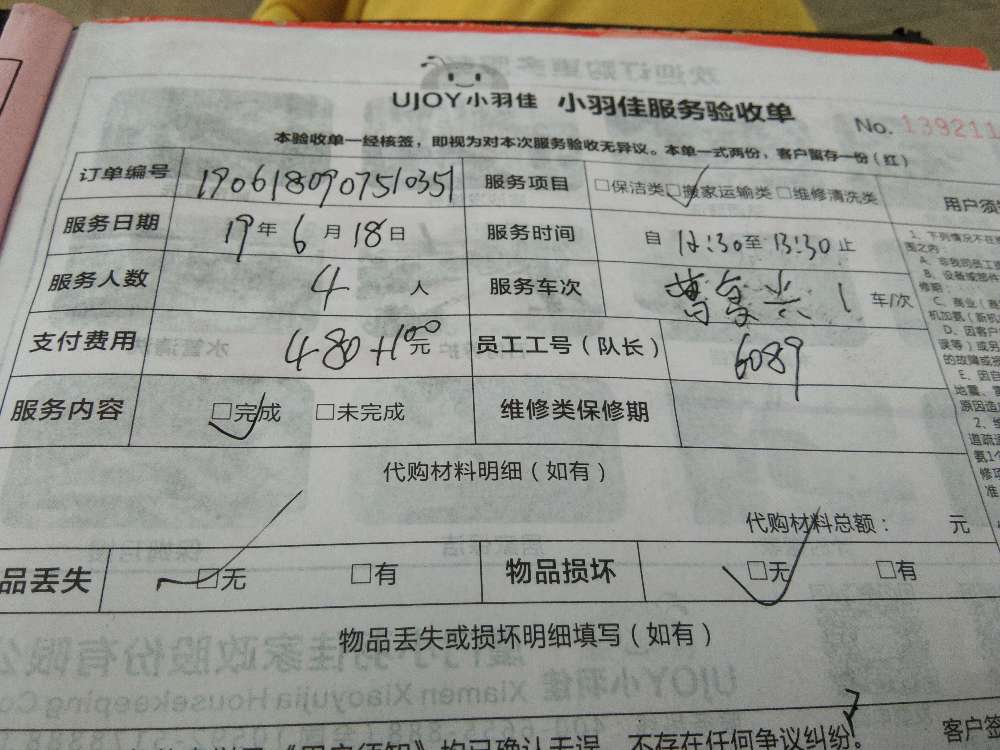 UJOY小羽佳 小羽佳服务验收单
No. 139211
本验收单一经核签，即视为对本次服务验收无异议。本单一式两份，客户留存一份（红）
订单编号 1906180907510351 服务项目 □保洁类 □搬家运输类 □维修清洗类
服务日期 19年6月18日 服务时间 自12:30至13:30止
服务人数 4人 服务车次 1 车/次
支付费用 480+100元 员工工号（队长） 6089
服务内容 □完成 □未完成 维修类保修期
代购材料明细（如有）
代购材料总额： 元
品丢失 □无 □有 物品损坏 □无 □有
物品丢失或损坏明细填写（如有）
《用户须知》均已确认无误，不存在任何争议纠纷。
客户签
用户须
1、下列情况不在
围之内
A、非我司员工
B、设备或部件
修期；
C、商业（
机加氨（新机
D、因客户
误等）或另
的故障或损
E、因自
地震、
原因造
2、维
道疏通
氨1个
修项
准